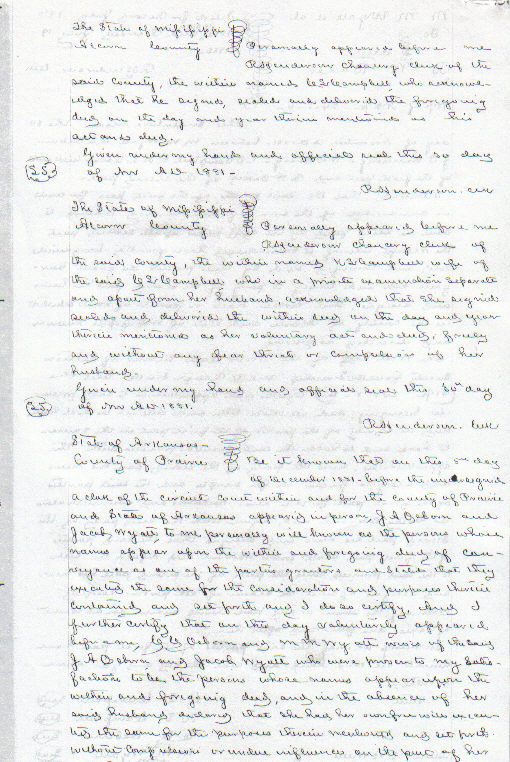 The State of Mississippi
Alcorn County Personally appeared before me
R Henderson Chancery clerk of the
said County, the within named C L Campbell who acknowl-
edged that he signed, sealed and delivered the foregoing
deed on the day and year therein mentioned as his
act and deed.
Given under my hand and official seal this 30 day
of Nov AD 1881-
R Henderson. clk
The State of Mississippi
Alcorn County Personally appeared before me
R Henderson Chancery clerk of
the said County, the within named Campbell wife of
the said C L Campbell who in a private examination separate
and apart from her husband, acknowledged that she signed
sealed and delivered the within deed on the day and year
therein mentioned as her voluntary act and deed, freely
and without any fear threats or compulsion of her
husband.
Given under my hand and official seal this 30th day
of Nov AD 1881.
R Henderson. clk
State of Arkansas-
County of Prairie Be it known that on this day
of December 1881- before the undersigned
a clerk of the circuit court within and for the county of Prairie
and State of Arkansas appeared in person, J A Osborn and
Jacob Wyatt, to me personally well known as the persons whose
names appear upon the within and foregoing deed of con-
veyance as one of the parties grantors and stated that they
executed the same for the consideration and purposes therein
contained and set forth and I do so certify. And I
further certify that on this day voluntarily appeared
before me, Osborn and M M Wyatt wives of the said
J A Osborn and Jacob Wyatt who were proven to my satis-
faction to be the persons whose names appear upon the
within and foregoing deed, and in the absence of her
said husband declared that she had her own free will execu-
ted the same for the purposes therein mentioned and set forth
without Compulsion or undue influences on the part of her